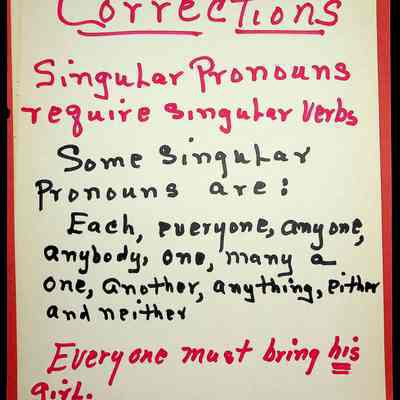 Corrections
Singular Pronouns
require singular Verbs
Some Singular
Pronouns are:
Each, everyone, anyone,
anybody, one, many a
one, another, anything, either
and neither
Everyone must bring his
girl.